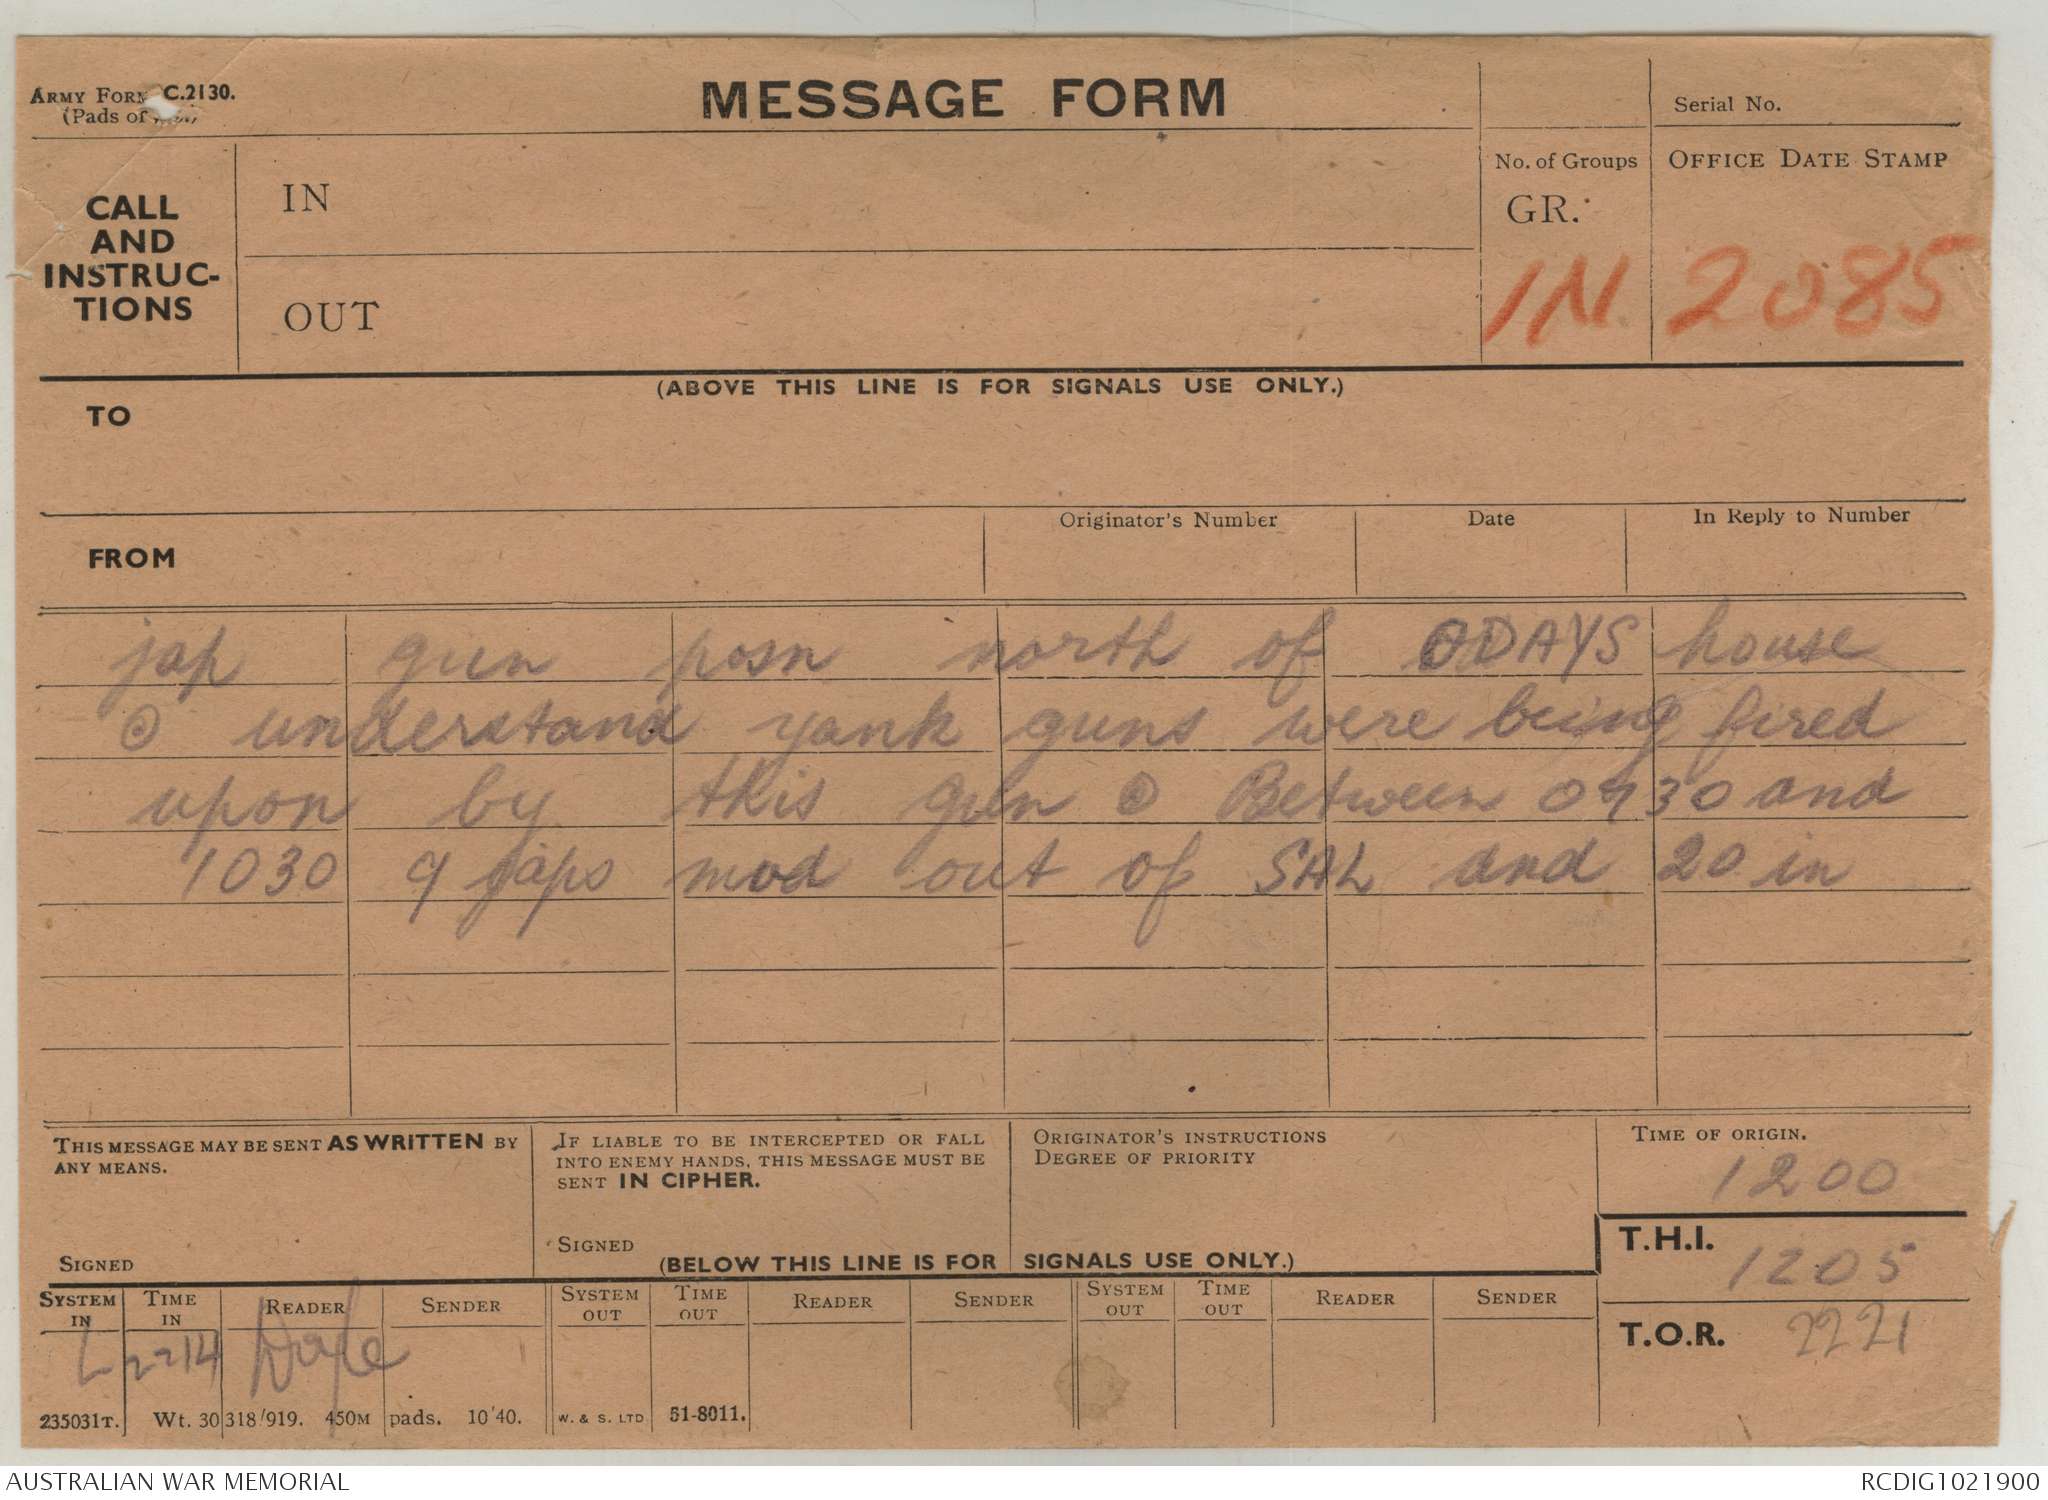 ARMY FORM C.2130.
(Pads of
MESSAGE FORM
Serial No.
CALL
AND
INSTRUC-
TIONS
IN
OUT
No. of Groups
GR.
OFFICE DATE STAMP
IN 2085
(ABOVE THIS LINE IS FOR SIGNALS USE ONLY.)
TO
FROM
Originator's Number
Date
In Reply to Number
jap gun posn north of ODAYS house
⊙ understand yank guns were being fired
upon by this gun ⊙ Between 0930 and
1030 9 japs mvd out of SAL and 20 in
THIS MESSAGE MAY BE SENT AS WRITTEN BY
ANY MEANS.
SIGNED
IF LIABLE TO BE INTERCEPTED OR FALL
INTO ENEMY HANDS, THIS MESSAGE MUST BE
SENT IN CIPHER.
SIGNED
ORIGINATOR'S INSTRUCTIONS
DEGREE OF PRIORITY
TIME OF ORIGIN.
1200
T.H.I.
1205
T.O.R. 2221
(BELOW THIS LINE IS FOR SIGNALS USE ONLY.)
SYSTEM IN TIME IN READER SENDER SYSTEM OUT TIME OUT READER SENDER SYSTEM OUT TIME OUT READER SENDER
L 2214 Doyle
235031T. Wt. 30318/919. 450M pads. 10'40. W. & S. LTD 51-8011.
AUSTRALIAN WAR MEMORIAL
RCDIG1021900